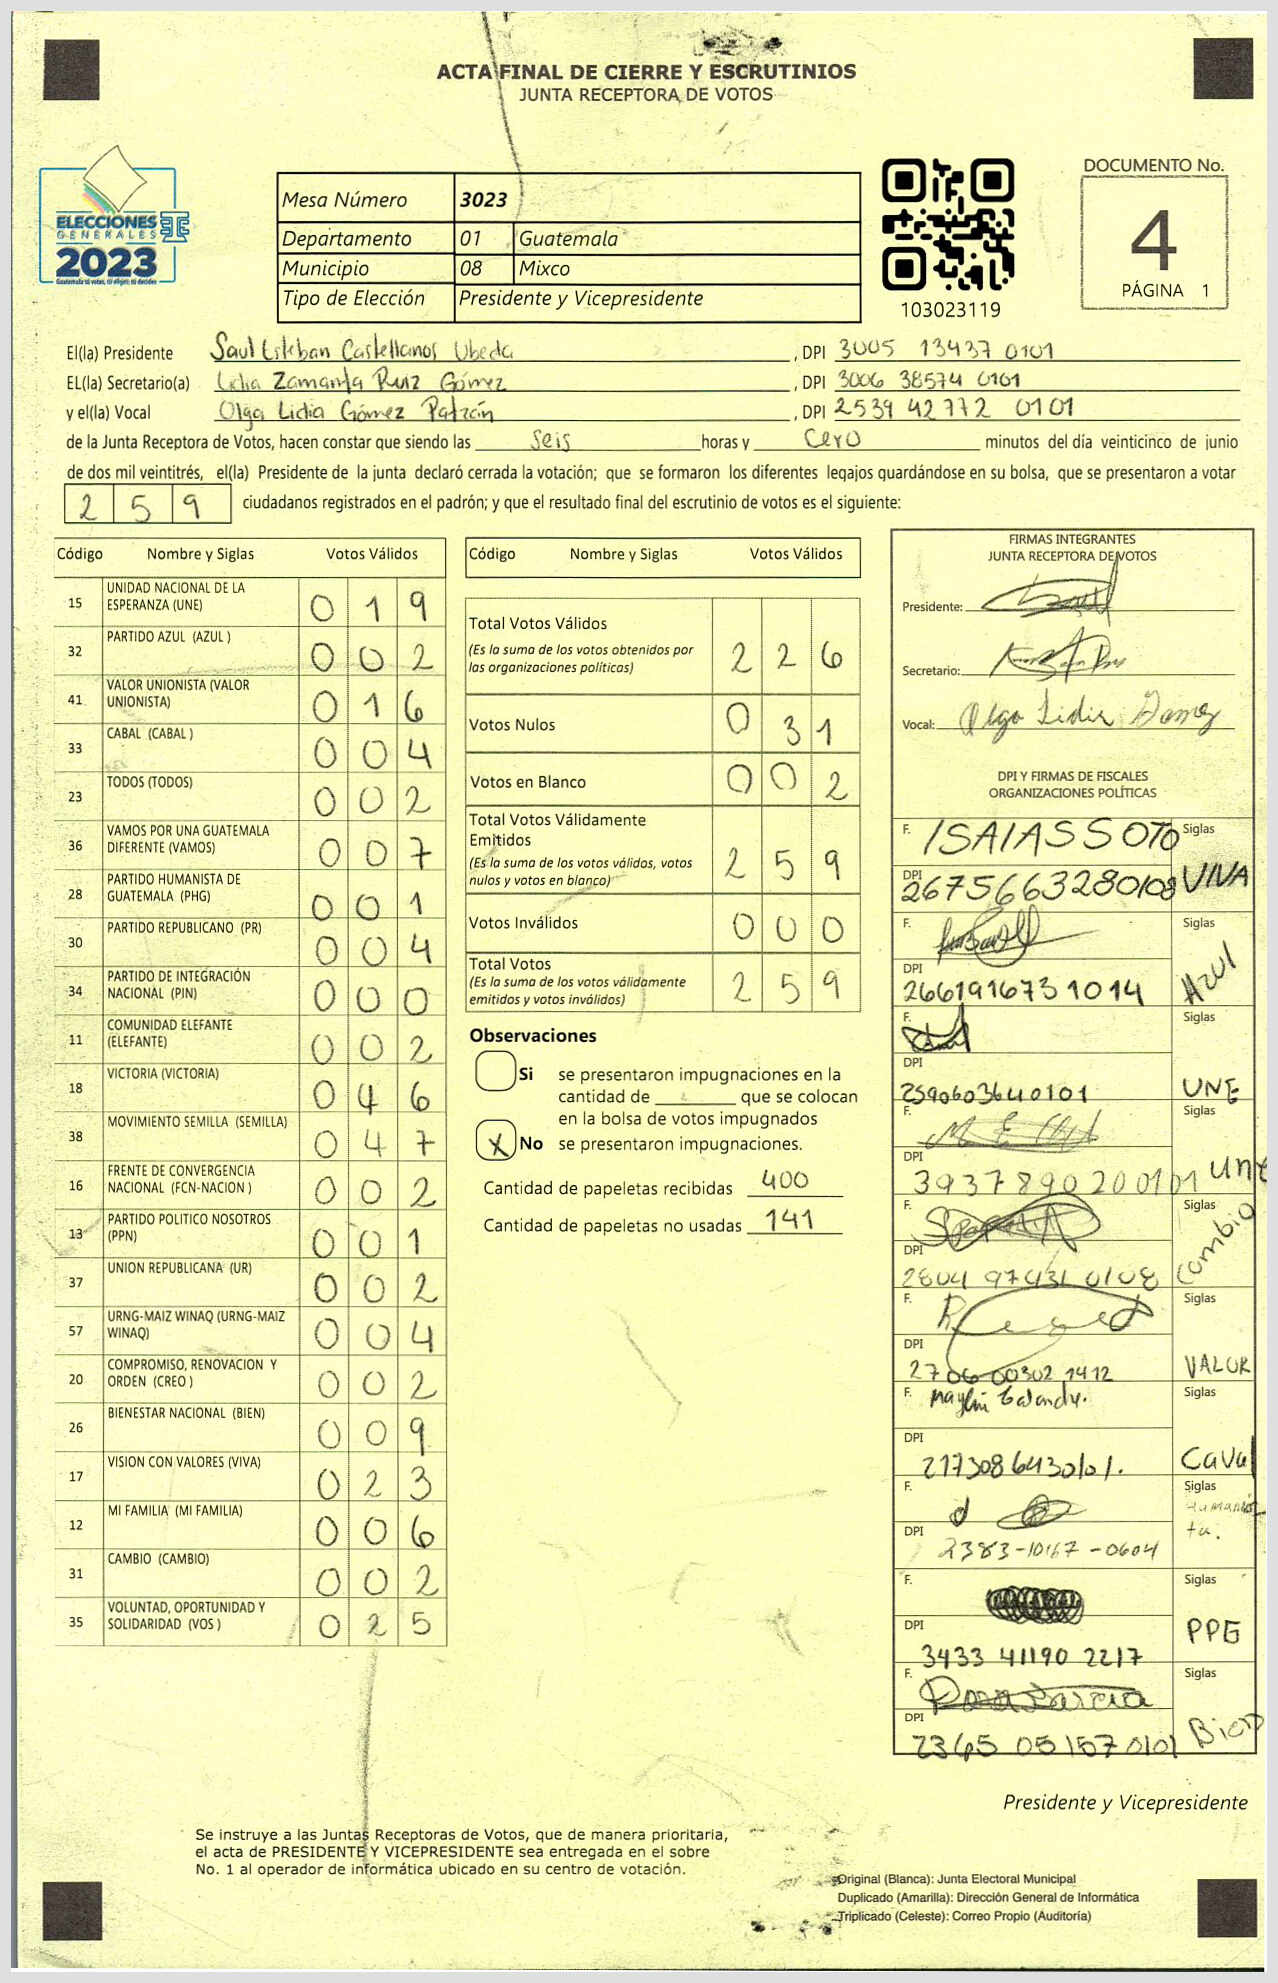 ACTA FINAL DE CIERRE Y ESCRUTINIOS
JUNTA RECEPTORA DE VOTOS
ELECCIONES
GENERALES
2023
Guatemala tú votas, tú eliges, tú decides
Mesa Número 3023
Departamento 01 Guatemala
Municipio 08 Mixco
Tipo de Elección Presidente y Vicepresidente
103023119
DOCUMENTO No.
4
PÁGINA 1
El(la) Presidente Saul Esteban Castellanos Ubeda, DPI 3005 13437 0101
EL(la) Secretario(a) Lidia Zamanta Ruiz Gómez, DPI 3006 38574 0101
y el(la) Vocal Olga Lidia Gómez Patzán, DPI 2539 42772 0101
de la Junta Receptora de Votos, hacen constar que siendo las seis horas y cero minutos del día veinticinco de junio
de dos mil veintitrés, el(la) Presidente de la junta declaró cerrada la votación; que se formaron los diferentes legajos guardándose en su bolsa, que se presentaron a votar
259 ciudadanos registrados en el padrón; y que el resultado final del escrutinio de votos es el siguiente:
Código Nombre y Siglas Votos Válidos
15 UNIDAD NACIONAL DE LA ESPERANZA (UNE) 019
32 PARTIDO AZUL (AZUL ) 002
41 VALOR UNIONISTA (VALOR UNIONISTA) 016
33 CABAL (CABAL ) 004
23 TODOS (TODOS) 002
36 VAMOS POR UNA GUATEMALA DIFERENTE (VAMOS) 007
28 PARTIDO HUMANISTA DE GUATEMALA (PHG) 001
30 PARTIDO REPUBLICANO (PR) 004
34 PARTIDO DE INTEGRACIÓN NACIONAL (PIN) 000
11 COMUNIDAD ELEFANTE (ELEFANTE) 002
18 VICTORIA (VICTORIA) 046
38 MOVIMIENTO SEMILLA (SEMILLA) 047
16 FRENTE DE CONVERGENCIA NACIONAL (FCN-NACION ) 002
13 PARTIDO POLITICO NOSOTROS (PPN) 001
37 UNION REPUBLICANA (UR) 002
57 URNG-MAIZ WINAQ (URNG-MAIZ WINAQ) 004
20 COMPROMISO, RENOVACION Y ORDEN (CREO ) 002
26 BIENESTAR NACIONAL (BIEN) 009
17 VISION CON VALORES (VIVA) 023
12 MI FAMILIA (MI FAMILIA) 006
31 CAMBIO (CAMBIO) 002
35 VOLUNTAD, OPORTUNIDAD Y SOLIDARIDAD (VOS ) 025
Código Nombre y Siglas Votos Válidos
Total Votos Válidos 226
(Es la suma de los votos obtenidos por las organizaciones políticas)
Votos Nulos 031
Votos en Blanco 002
Total Votos Válidamente Emitidos 259
(Es la suma de los votos válidos, votos nulos y votos en blanco)
Votos Inválidos 000
Total Votos 259
(Es la suma de los votos válidamente emitidos y votos inválidos)
Observaciones
Si se presentaron impugnaciones en la
cantidad de ________ que se colocan
en la bolsa de votos impugnados
X No se presentaron impugnaciones.
Cantidad de papeletas recibidas 400
Cantidad de papeletas no usadas 141
FIRMAS INTEGRANTES
JUNTA RECEPTORA DE VOTOS
Presidente:
Secretario:
Vocal: Olga Lidia Gomez
DPI Y FIRMAS DE FISCALES
ORGANIZACIONES POLÍTICAS
F. ISAIAS SOTO Siglas
DPI 2675663280108 VIVA
F. Siglas
DPI 2661916731014 Azul
F. Siglas
DPI 2590603640101 UNE
F. Siglas
DPI 3937890200101 une
F. Siglas
DPI 2804 97431 0108 Cambio
F. Siglas
DPI 2706 00302 1412 VALOR
F. Siglas
DPI 2173086430101. CaVal
F. Siglas
DPI 2383-10167-0604 Humanista.
F. Siglas
DPI 3433 41190 2217 PPG
F. Rosa Garcia Siglas
DPI 2365 05157 0101 Bien
Presidente y Vicepresidente
Se instruye a las Juntas Receptoras de Votos, que de manera prioritaria,
el acta de PRESIDENTE Y VICEPRESIDENTE sea entregada en el sobre
No. 1 al operador de informática ubicado en su centro de votación.
Original (Blanca): Junta Electoral Municipal
Duplicado (Amarilla): Dirección General de Informática
Triplicado (Celeste): Correo Propio (Auditoría)